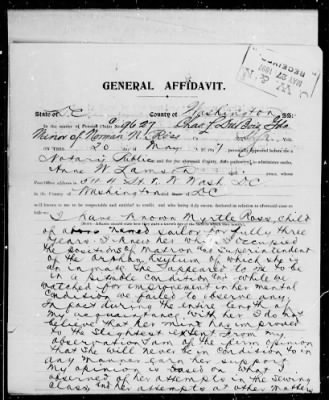 W & N
MAY 27 1897
RECEIVED
GENERAL AFFIDAVIT.
State of D.C. County of Washington, SS:
In the matter of C 9627 Chas J DuBois Gdn
Minor of Norman N. Ross
ON THIS 20 day of May, 1897, personally appeared before me a
Notary Public in and for the aforesaid County, duly authorized to administer oaths,
Anne W. Lamson
Post-Office address is N W Wash. D.C.
Washington D.C.
well known to me to be respectable and entitled to credit, and who being duly sworn, declared in relation to aforesaid case as follows:
I have known Myrtle Ross, Child
of above named sailor for fully three
years. I knew her when I occupied
the position of Matron and Superintendent
of the Orphan Asylum of which she is
an inmate. She appeared to me to be
in a pitiable condition and while we
watched for improvement in her mental
condition we failed to observe any.
In fact during the entire length of
my acquaintance with her I do not
believe that her mind has improved
to the slightest extent. From my
observation I am of the firm opinion
that she will never be in condition to in
any manner earn her support.
My opinion is based on what I
observed of her attempts in the sewing
class, and her attempts at other matters